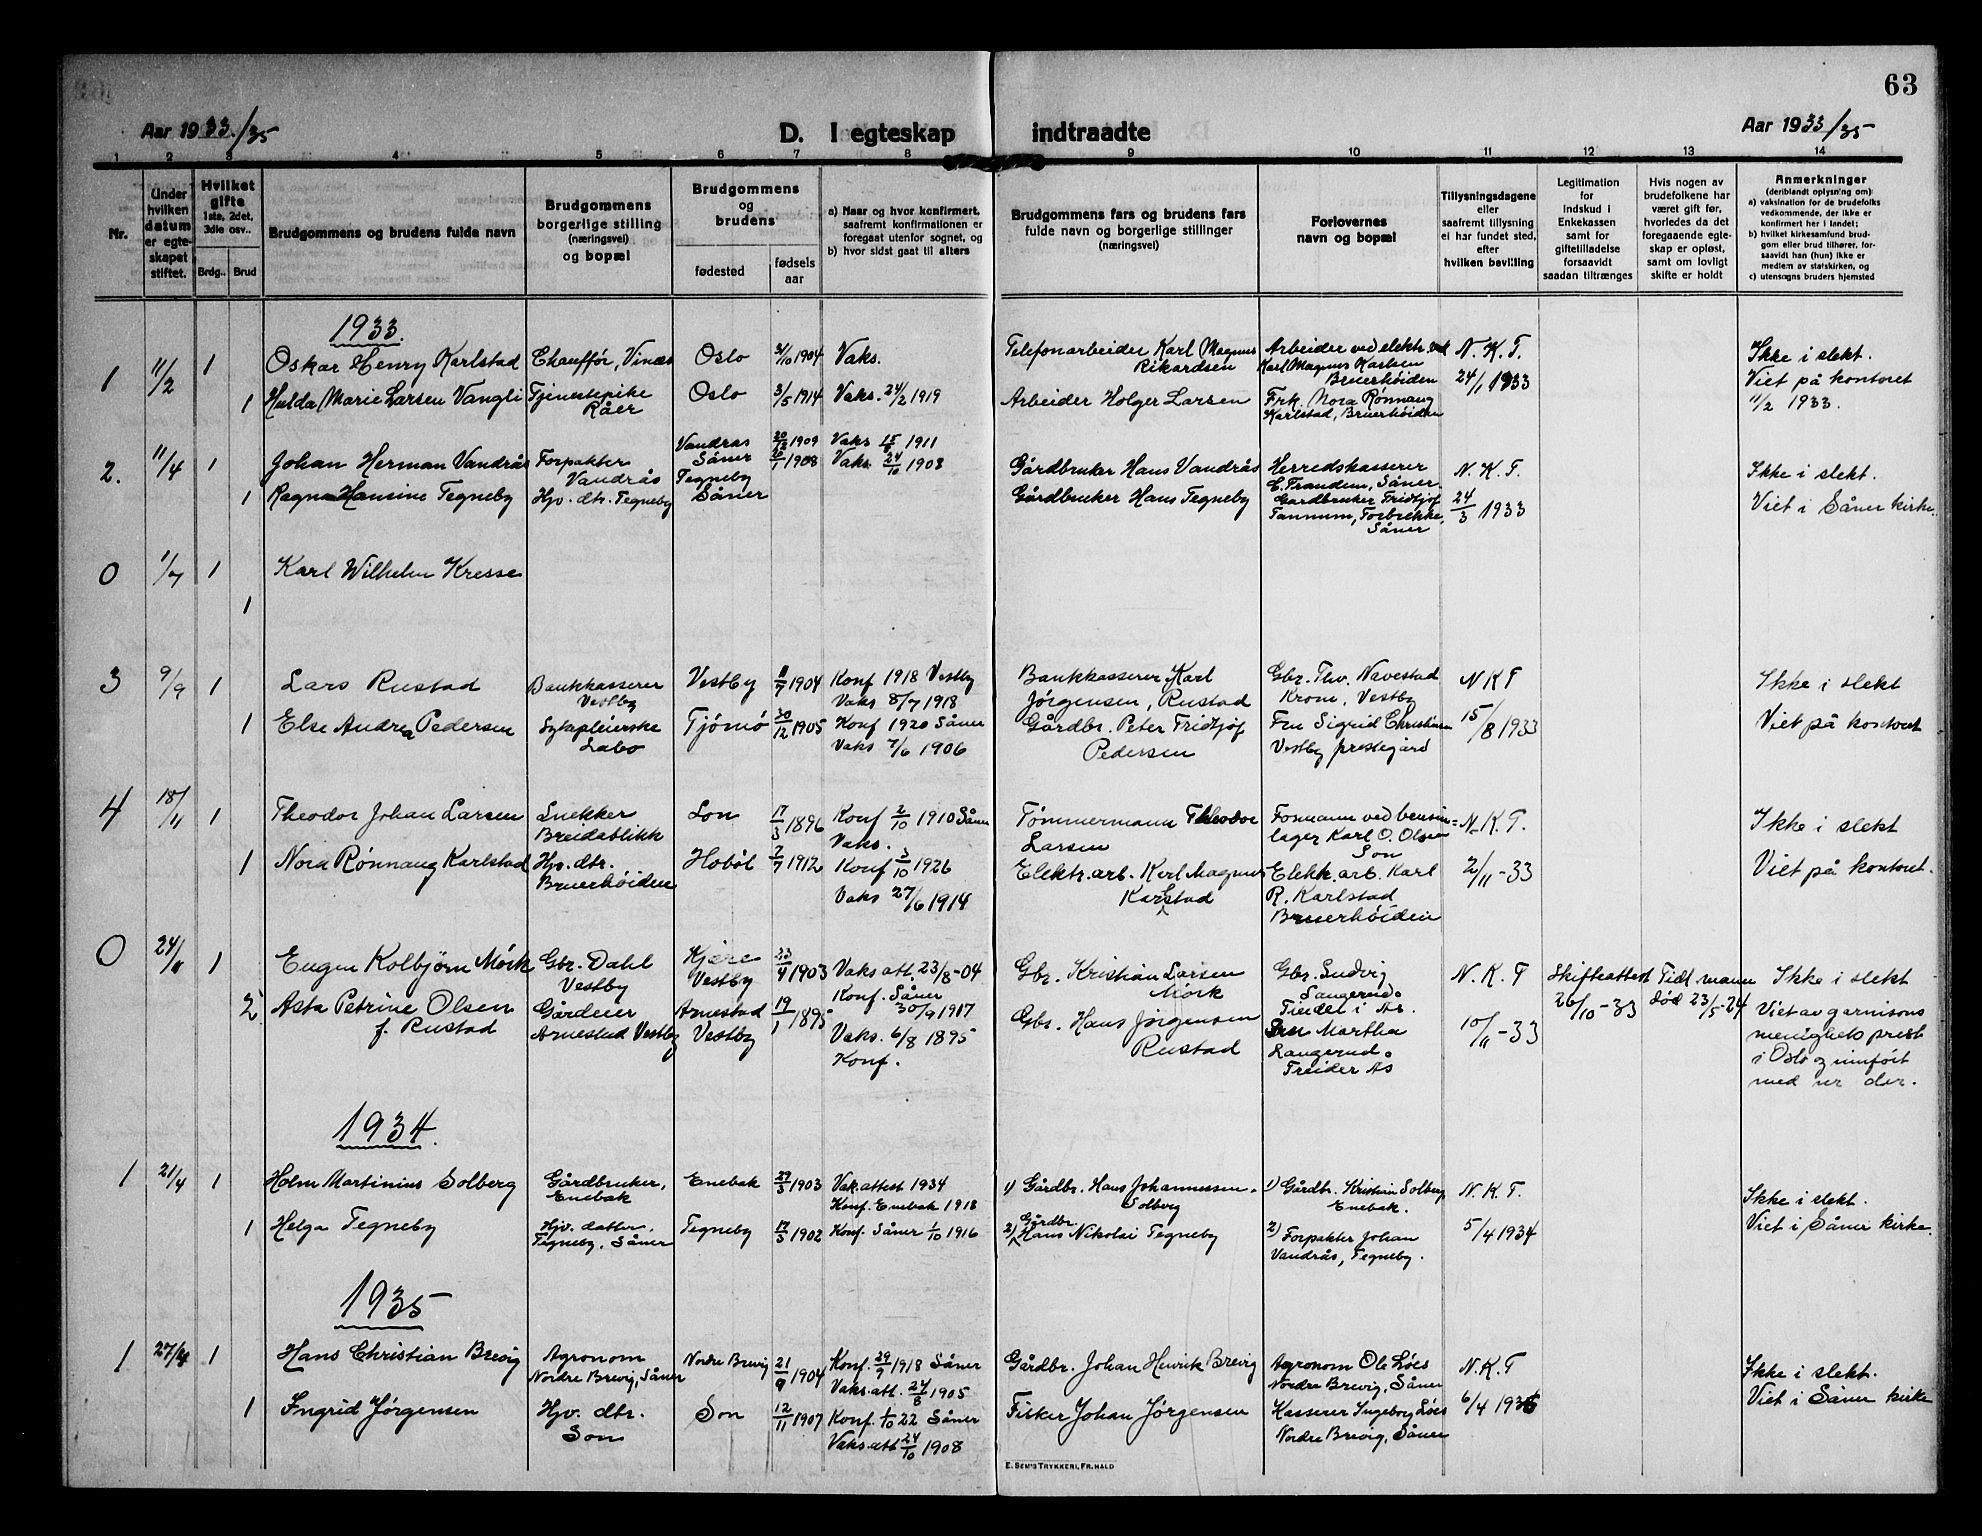 63
Aar 1933/35
D. I egteskap indtraadte
Aar 1933/35
1 2 3 4 5 6 7 8 9 10 11 12 13 14
Nr.
Under hvilken datum er egteskapet stiftet.
Hvilket gifte 1ste, 2det, 3dje osv..
Brdg.. Brud
Brudgommens og brudens fulde navn
Brudgommens borgerlige stilling (næringsvei) og bopæl
Brudgommens og brudens
fødested
fødselsaar
a) Naar og hvor konfirmert, saafremt konfirmationen er foregaat utenfor sognet, og
b) hvor sidst gaat til alters
Brudgommens fars og brudens fars fulde navn og borgerlige stillinger (næringsvei)
Forlovernes navn og bopæl
Tillysningsdagene eller saafremt tillysning ei har fundet sted, efter hvilken bevilling
Legitimation for Indskud i Enkekassen samt for giftetilladelse forsaavidt saadan tiltrænges
Hvis nogen av brudefolkene har været gift før, hvorledes da det foregaaende egteskap er opløst, samt om lovligt skifte er holdt
Anmerkninger (deriblandt oplysning om):
a) vaksination for de brudefolks vedkommende, der ikke er konfirmert her i landet;
b) hvilket kirkesamfund brudgom eller brud tilhører, forsaavidt han (hun) ikke er medlem av statskirken, og
c) utensogns bruders hjemsted
1933.
1 11/2 1 Oskar Henry Karlstad Chauffør, Vinæs Oslo 1904 Vaks. Telefonarbeider Karl Magnus Rikardsen Arbeider ved elektr. Karl Magnus Karlsen Bruerhøiden N. K. T. 24/1 1933 Ikke i slekt. Viet på kontoret 11/2 1933.
1 Hulda Marie Larsen Vangli Tjenestepike Råer Oslo 3/5 1914 Vaks. 24/2 1919 Arbeider Holger Larsen Frk. Nora Rønnaug Karlstad, Bruerhøiden
2. 11/4 1 Johan Herman Vandrås Forpakter Vandrås Vandras Såner 1909 Vaks 1911 Gårdbruker Hans Vandrås Herredskasserer E. Frandem, Såner. N. K. T. 24/3 1933 Ikke i slekt. Viet i Såner kirke.
1 Ragna Hansine Tegneby Hjv. dtr. Tegneby Tegneby Såner 1908 Vaks. 24/10 1908 Gårdbruker Hans Tegneby Gardbruker Fridtjof Tannum, Forbrekke, Såner
0 1/7 1 Karl Wilhelm Kresse
1
3 9/9 1 Lars Rustad Bankkasserer Vestby Vestby 1904 Konf 1918 Vestby Vaks 8/7 1918 Bankkasserer Karl Jørgensen, Rustad Gbr. Thv. Navestad Krom, Vestby N K T 15/8 1933 Ikke i slekt Viet på kontoret
1 Else Andrea Pedersen Sykepleierske Labo Tjømø 30/12 1905 Konf 1920 Såner Vaks 7/6 1906 Gårdbr. Peter Fridtjof Pedersen Fru Sigrid Christensen Vestby prestegård
4 18/11 1 Theodor Johan Larsen Snekker Breidablikk Son 17/3 1896 Konf 2/10 1910 Såner Vaks. Tømmermann Theodor Larsen Formann ved bensinlager Karl O. Olsen Son N. K. T. 2/11-33 Ikke i slekt Viet på kontoret.
1 Nora Rønnaug Karlstad Hjv. dtr. Bruerhøiden Hobøl 2/7 1912 Konf 3/10 1926 Vaks 27/6 1914 Elektr. arb. Karl Magnus Karlstad Elektr. arb. Karl R. Karlstad Bruerhöiden
0 24/11 1 Eugen Kolbjørn Mörk Gbr. Dahl Vestby Kjære Vestby 23/4 1903 Vaks att. 23/8-04 Konf. Såner 30/9 1917 Gbr. Kristian Larsen Mørk Gbr. Ludvig Langerud. i As. N. K. T 10/11-33 Skifteattest 26/10-33 Tidl mann död 23/5-24 Ikke i slekt Viet av garnisons menighets prest i Oslo og innført med nr der.
2 Asta Petrine Olsen f. Rustad Gårdeier Arnestad Vestby Arnestad Vestby 19/1 1895 Vaks. 6/8 1895 Konf. Gbr. Hans Jørgensen Rustad Martha Langerud. As
1934.
1 21/4 1 Holm Martinius Solberg Gårdbruker, Enebak Enebak 29/3 1903 Vak. attest 1934 Konf. Enebak 1918 1) Gårdbr. Hans Johannessen Solberg 1) Gårdbr. Kristian Solberg Enebak. N. K. T. 5/4 1934 Ikke i slekt. Viet i Såner kirke.
1 Helga Tegneby Hjv. datter. Tegneby, Såner Tegneby 17/3 1902 Konf. Såner 1/10 1916 2) Gårdbr. Hans Nikolai Tegneby 2) Forpakter Johan Vandrås, Tegneby.
1935
1 27/4 1 Hans Christian Brevig Agronom Nordre Brevig, Såner Nordre Brevig 21/9 1904 Konf. 29/9 1918 Såner Vaks. att. 24/8 1905 Gårdbr. Johan Henrik Brevig Agronom Ole Löes Nordre Brevig, Såner N. K. T 6/4 1935 Ikke i slekt. Viet i Såner kirke
1 Ingrid Jørgensen Hjv. dtr. Son Son 12/11 1907 Konf. 1/10 22 Såner Vaks. att 24/10 1908 Fisker Johan Jørgensen Kasserer Ingeborg Löes Nordre Brevig, Såner
E. SEM'S TRYKKERI, FR.HALD